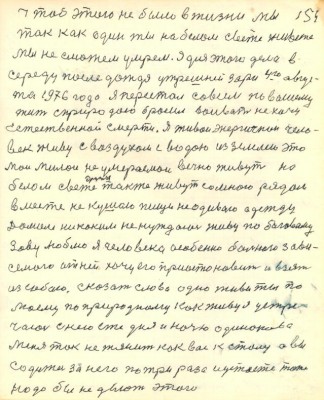 чтоб этого не было в жизни мы 154
так как один ты на белом свете живеш
мы не сможем умрем. Я для этого дела в
среду после дождя утрешней зари 4го авгус
та 1976 года я перестал совсем по вашему
жить с природаю бросил воивать не хочу
естественной смерти. Я живой энергичной чело
век живу с воздухом с водою из землею это
мои милои не умераемои вечно живут но
белом свете другие также живут со мною рядом
вместе не кушаю пищи не одеваю адежду
Домом никоким не нуждаюсь живу по баговому
Зову люблю я человека особенно больного зави
семого от ней хочу его приостоновит и взят
из собою. сказат слово одно живи ты по
моему поприродному как живу я
часом с нею сте дня и ночю одинокова
меня так не тянит как вас к столу а вы
садитис за него по три раза и устаете тоже
надо бы не делат этого